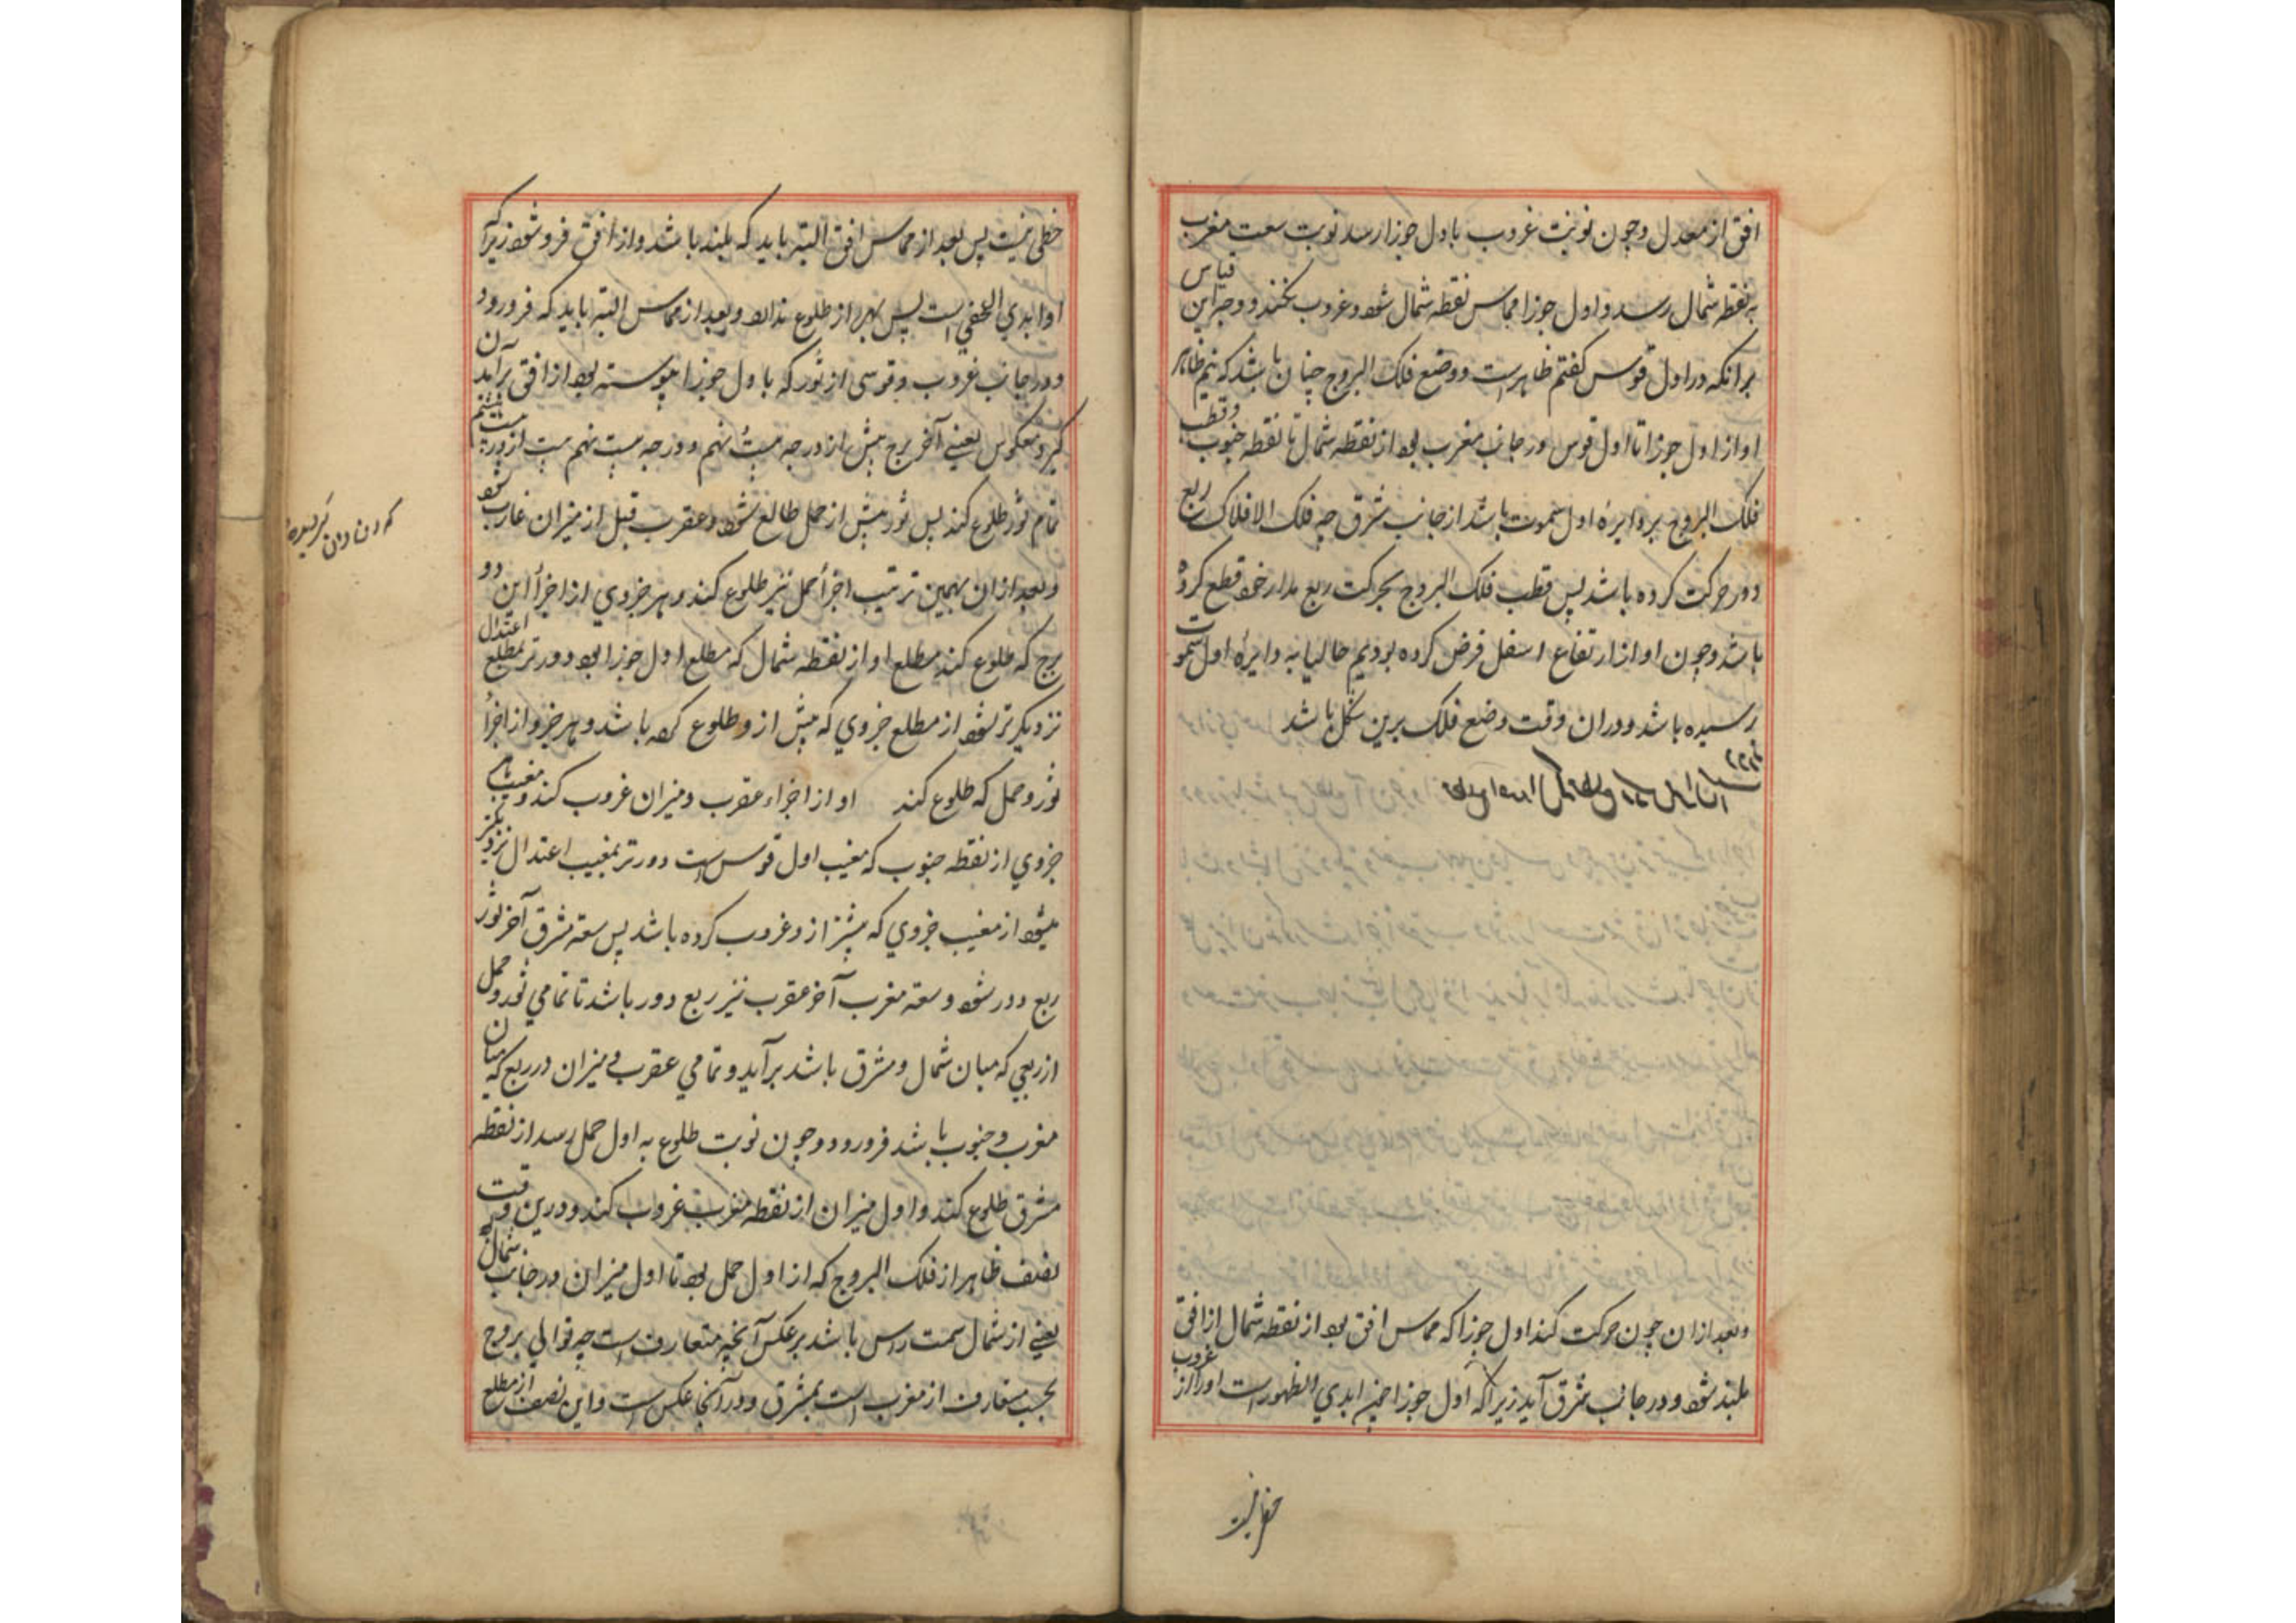 افق از معدل وچون نوبت غروب باول جوزا رسد نوبت سعت مغرب
به نقطه شمال رسد و اول جوزا مماس نقطه شمال شود و غروب نکند و وجه این قیاس
برانکه در اول قوس کفتم ظاهر است ووضع فلک البروج چنان باشد که نیم ظاهر
او از اول جوزا تا اول قوس در جانب مغرب بود از نقطه شمال تا نقطه جنوب وقطب
فلک البروج بر دایرهٔ اول سموت باشد از جانب شرق چه فلک الافلاک ربع
دور حرکت کرده باشد پس قطب فلک البروج بحرکت ربع مدار خود قطع کرده
باشد وچون او از ارتفاع اسفل فرض کرده بودیم حالیا به دایرهٔ اول سموت
رسیده باشد ودران وقت وضع فلک برین شکل باشد
وبعد ازان چون حرکت کند اول جوزا که مماس افق بود از نقطه شمال از افق
بلند شود ودر جانب شرق آید زیرا که اول جوزا ابدی الظهور است اورا از غروب
خطی نیست پس بعد از مماس افق البته باید که بلند باشد و از افق فرو شود زیرا که
او ابدی الخفی است پس بهره از طلوع ندارد وبعد از مماس البته باید که فرو رود
ودر جانب غروب وقوسی از ثور که باول جوزا پیوسته بود از افق برآید
کیرد معکوس یعنے آخر برج پیش از درجه بیست نهم ودرجه بیست نهم پیش از درجه بیستم
تمام ثور طلوع کند پس ثور پیش از حمل طالع شود وعقرب قبل از میزان غارب شود
وبعد ازان بهمین ترتیب اجزأ حمل نیز طلوع کند وهر جزوی از اجزأ این دو
برج که طلوع کند مطلع او از نقطه شمال که مطلع اول جوزا بود دورتر بمطلع اعتدال
نزدیکتر شود از مطلع جزوی که پیش ازو طلوع کرده باشد وهر جزو از اجزأ
ثور وحمل که طلوع کند او از اجزاء عقرب ومیزان غروب کند ومغیب هر
جزوی از نقطه جنوب که مغیب اول قوس است دورتر بمغیب اعتدال نزدیکتر
میشود از مغیب جزوی که پیشتر ازو غروب کرده باشد پس سعة مشرق آخر ثور
ربع دور شود وسعة مغرب آخر عقرب نیز ربع دور باشد تا تمامی ثور وحمل
از ربعی که میان شمال ومشرق باشد برآید وتمامی عقرب ومیزان در ربع که میان
مغرب وجنوب باشد فرو رود وچون نوبت طلوع به اول حمل رسد از نقطه
مشرق طلوع کند و اول میزان از نقطه مغرب غروب کند ودرین وقت
نصف ظاهر از فلک البروج که از اول حمل بود تا اول میزان در جانب شمال
یعنے از شمال سمت راس باشد برعکس آنچه متعارف است چه توالی بروج
بحسب متعارف از مغرب است بمشرق ودر آنجا عکس است واین نصف از مطلع